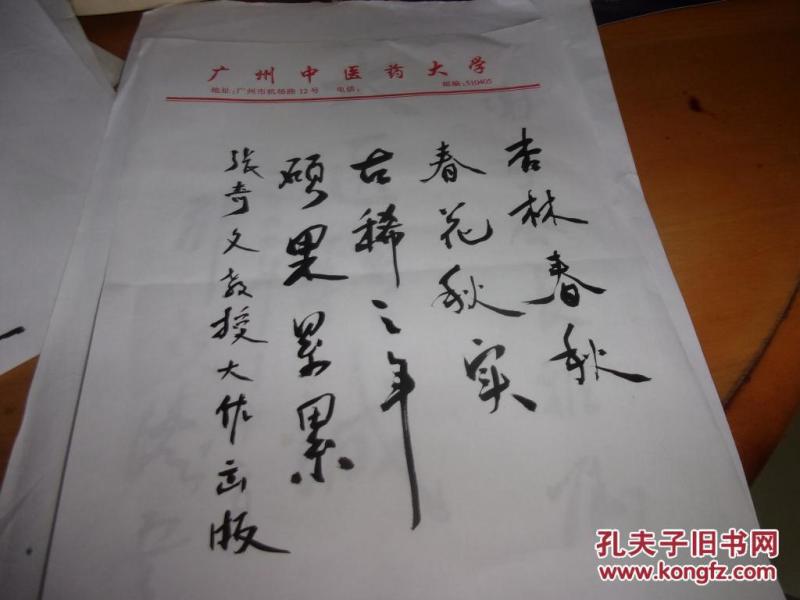 广州中医药大学
地址：广州市机场路12号 电话： 邮编：510405
杏林春秋
春花秋实
古稀之年
硕果累累
张奇文教授大作出版
孔夫子旧书网
www.kongfz.com